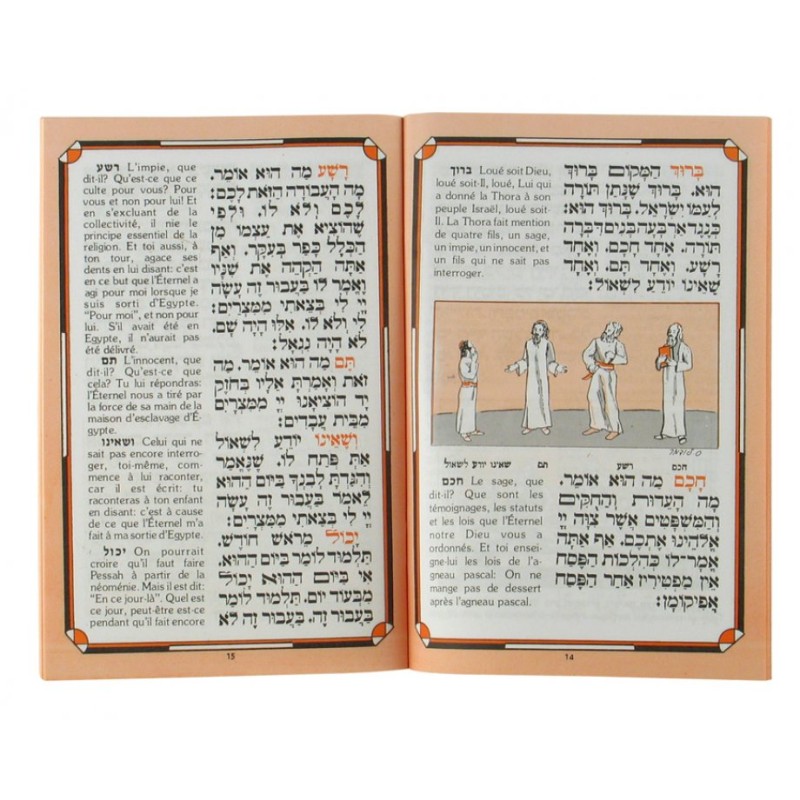 ברוך Loué soit Dieu,
loué soit-Il, loué, Lui qui
a donné la Thora à son
peuple Israël, loué soit-
Il. La Thora fait mention
de quatre fils, un sage,
un impie, un innocent, et
un fils qui ne sait pas
interroger.
בָּרוּךְ הַמָּקוֹם בָּרוּךְ
הוּא. בָּרוּךְ שֶׁנָּתַן תּוֹרָה
לְעַמּוֹ יִשְׂרָאֵל. בָּרוּךְ הוּא:
כְּנֶגֶד אַרְבָּעָה בָנִים דִּבְּרָה
תוֹרָה. אֶחָד חָכָם. וְאֶחָד
רָשָׁע. וְאֶחָד תָּם. וְאֶחָד
שֶׁאֵינוֹ יוֹדֵעַ לִשְׁאוֹל:
חכם רשע תם שאינו יודע לשאול
חכם Le sage, que
dit-il? Que sont les
témoignages, les statuts
et les lois que l'Éternel
notre Dieu vous a
ordonnés. Et toi ensei-
gne-lui les lois de l'a-
gneau pascal: On ne
mange pas de dessert
après l'agneau pascal.
חָכָם מַה הוּא אוֹמֵר.
מָה הָעֵדוֹת וְהַחֻקִּים
וְהַמִּשְׁפָּטִים אֲשֶׁר צִוָּה יְיָ
אֱלֹהֵינוּ אֶתְכֶם. אַף אַתָּה
אֱמָר־לוֹ כְּהִלְכוֹת הַפֶּסַח
אֵין מַפְטִירִין אַחַר הַפֶּסַח
אֲפִיקוֹמָן:
14
רשע L'impie, que
dit-il? Qu'est-ce que ce
culte pour vous? Pour
vous et non pour lui! Et
en s'excluant de la
collectivité, il nie le
principe essentiel de la
religion. Et toi aussi, à
ton tour, agace ses
dents en lui disant: c'est
en ce but que l'Éternel a
agi pour moi lorsque je
suis sorti d'Egypte.
"Pour moi", et non pour
lui. S'il avait été en
Egypte, il n'aurait pas
été délivré.
תם L'innocent, que
dit-il? Qu'est-ce que
cela? Tu lui répondras:
l'Éternel nous a tiré par
la force de sa main de la
maison d'esclavage d'É-
gypte.
ושאינו Celui qui ne
sait pas encore interro-
ger, toi-même, com-
mence à lui raconter,
car il est écrit: tu
raconteras à ton enfant
en disant: c'est à cause
de ce que l'Éternel m'a
fait à ma sortie d'Egypte.
יכול On pourrait
croire qu'il faut faire
Pessah à partir de la
néoménie. Mais il est dit:
"En ce jour-là". Quel est
ce jour, peut-être est-ce
pendant qu'il fait encore
רָשָׁע מַה הוּא אוֹמֵר.
מָה הָעֲבוֹדָה הַזֹּאת לָכֶם:
לָכֶם וְלֹא לוֹ. וּלְפִי
שֶׁהוֹצִיא אֶת עַצְמוֹ מִן
הַכְּלָל כָּפַר בְּעִקָּר. וְאַף
אַתָּה הַקְהֵה אֶת שִׁנָּיו
וֶאֱמָר לוֹ בַּעֲבוּר זֶה עָשָׂה
יְיָ לִי בְּצֵאתִי מִמִּצְרָיִם:
לִי וְלֹא לוֹ. אִלּוּ הָיָה שָׁם.
לֹא הָיָה נִגְאָל:
תָּם מַה הוּא אוֹמֵר. מַה
זֹאת וְאָמַרְתָּ אֵלָיו בְּחֹזֶק
יָד הוֹצִיאָנוּ יְיָ מִמִּצְרַיִם
מִבֵּית עֲבָדִים:
וְשֶׁאֵינוֹ יוֹדֵעַ לִשְׁאוֹל
אַתְּ פְּתַח לוֹ. שֶׁנֶּאֱמַר
וְהִגַּדְתָּ לְבִנְךָ בַּיּוֹם הַהוּא
לֵאמֹר בַּעֲבוּר זֶה עָשָׂה
יְיָ לִי בְּצֵאתִי מִמִּצְרָיִם:
יָכוֹל מֵרֹאשׁ חוֹדֶשׁ.
תַּלְמוּד לוֹמַר בַּיּוֹם הַהוּא.
אִי בַּיּוֹם הַהוּא יָכוֹל
מִבְּעוֹד יוֹם. תַּלְמוּד לוֹמַר
בַּעֲבוּר זֶה. בַּעֲבוּר זֶה לֹא
15